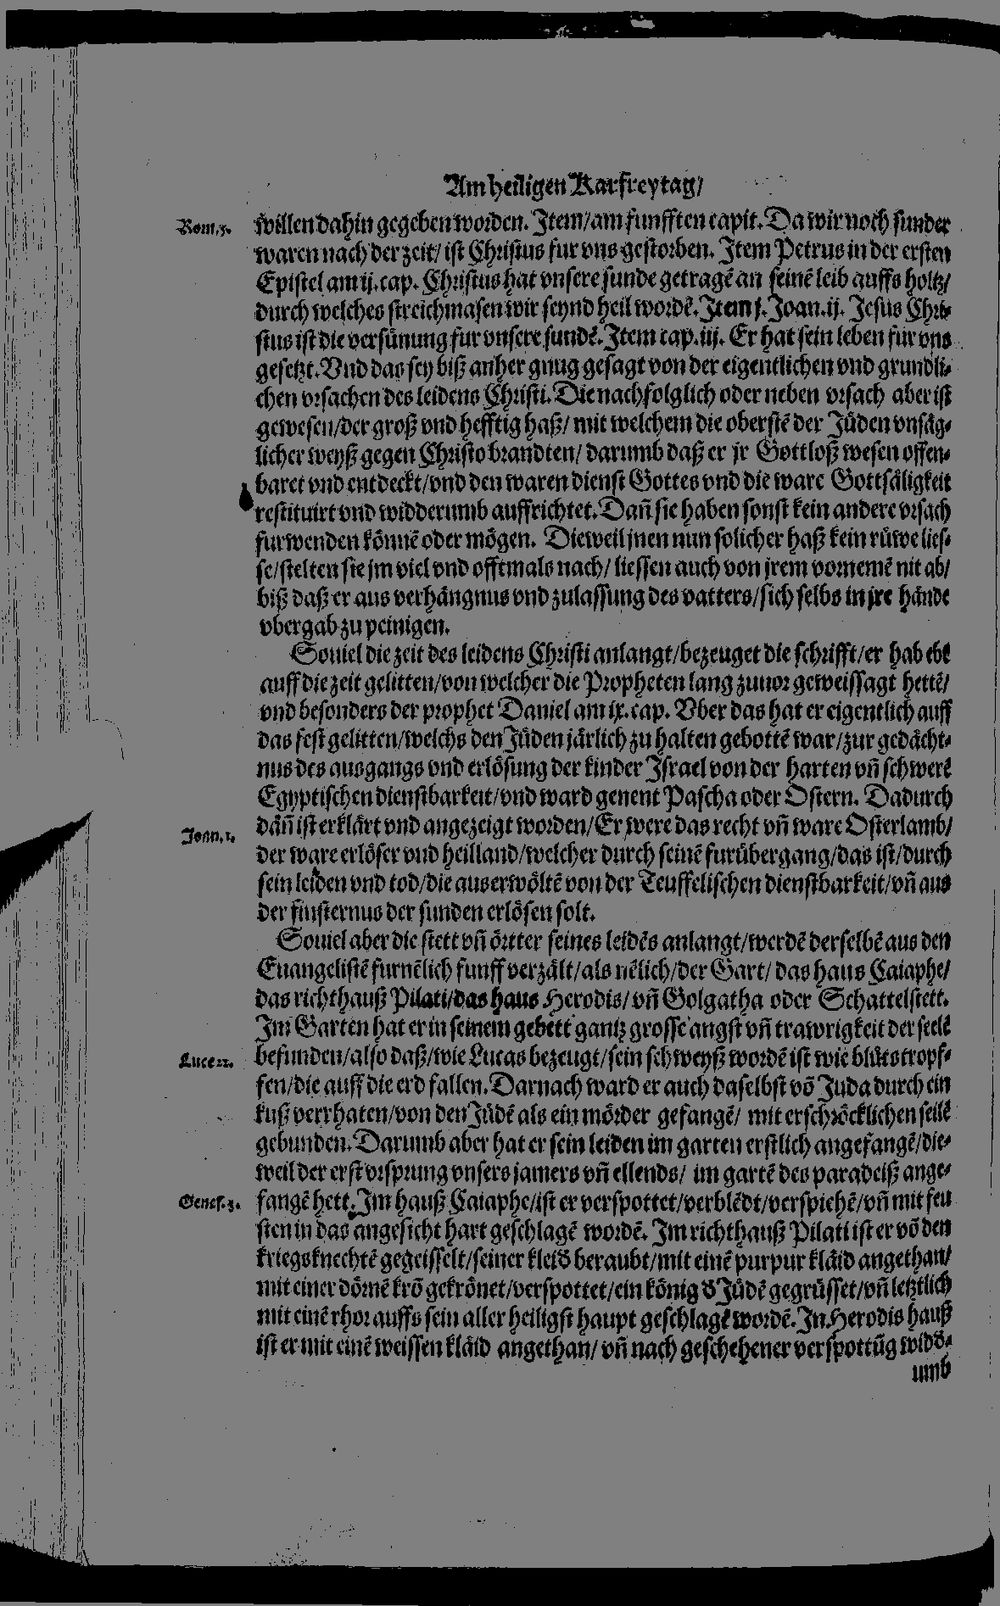 Am heiligen Karfreytag/
Rom. 5. willen dahin gegeben worden. Item/am funfften capit. Da wir noch sunder
waren nach der zeit/ ist Christus fur vns gestorben. Item Petrus in der ersten
Epistel am ij. cap. Christus hat vnsere sunde getragē an seinē leib auffs holtz/
durch welches streichmasen wir seynd heil wordē. Item j. Joan. ij. Jesus Chri-
stus ist die versünung fur vnsere sundē. Item cap. iij. Er hat sein leben fur vns
gesetzt. Vnd das sey biß anher gnug gesagt von der eigentlichen vnd grundli-
chen vrsachen des leidens Christi. Die nachfolglich oder neben vrsach aber ist
gewesen/der groß vnd hefftig haß/ mit welchem die oberstē der Jüden vnsäg-
licher weyß gegen Christo brandten/ darumb daß er jr Gottloß wesen offen-
baret vnd entdeckt/vnd den waren dienst Gottes vnd die ware Gottsäligkeit
restituirt vnd widderumb auffrichtet. Dañ sie haben sonst kein andere vrsach
furwenden könnē oder mögen. Dieweil jnen nun solicher haß kein rüwe lies-
se/stelten sie jm viel vnd offtmals nach/ liessen auch von jrem vornemē nit ab/
biß daß er aus verhängnus vnd zulassung des vatters/sich selbs in jre hände
vbergab zu peinigen.
Souiel die zeit des leidens Christi anlangt/bezeuget die schrifft/er hab ebē
auff die zeit gelitten/von welcher die Propheten lang zuuor geweissagt hettē/
vnd besonders der prophet Daniel am ix. cap. Vber das hat er eigentlich auff
das fest gelitten/welchs den Jüden järlich zu halten gebottē war/zur gedächt-
nus des ausgangs vnd erlösung der kinder Israel von der harten vñ schwerē
Egyptischen dienstbarkeit/vnd ward genent Pascha oder Ostern. Dadurch
Joan. 1. dāñ ist erklärt vnd angezeigt worden/Er were das recht vñ ware Osterlamb/
der ware erlöser vnd heilland/welcher durch seinē furübergang/das ist/durch
sein leiden vnd tod/die auserwöltē von der Teuffelischen dienstbarkeit/vñ aus
der finsternus der sunden erlösen solt.
Souiel aber die stett vñ örtter seines leidēs anlangt/werdē derselbē aus den
Euangelistē furnēlich funff verzält/als nēlich/der Gart/ das haus Caiaphe/
das richthauß Pilati/das haus Herodis/ vñ Golgatha oder Schattelstett.
Im Garten hat er in seinem gebett gantz grosse angst vñ trawrigkeit der seelē
Luce 22. befunden/also daß/wie Lucas bezeugt/sein schweyß wordē ist wie blůts tropf-
fen/die auff die erd fallen. Darnach ward er auch daselbst vō Juda durch ein
kuß verrhaten/von den Jüdē als ein mörder gefangē/ mit erschröcklichen seilē
gebunden. Darumb aber hat er sein leiden im garten erstlich angefangē/die-
weil der erst vrsprung vnsers jamers vñ ellends/ im gartē des paradeiß ange-
Genes. 3. fangē hett. Im hauß Caiaphe/ist er verspottet/verblēdt/verspiehē/vñ mit feu
sten in das angesicht hart geschlagē wordē. Im richthauß Pilati ist er vō den
kriegsknechtē gegeisselt/seiner kleid beraubt/mit einē purpur kläid angethan/
mit einer dörnē krō gekrönet/verspottet/ein könig d Jüdē gegrüsset/vñ letztlich
mit einē rhor auffs sein aller heiligst haupt geschlagē wordē. In Herodis hauß
ist er mit einē weissen kläid angethan/ vñ nach geschehener verspottūg widd-
umb